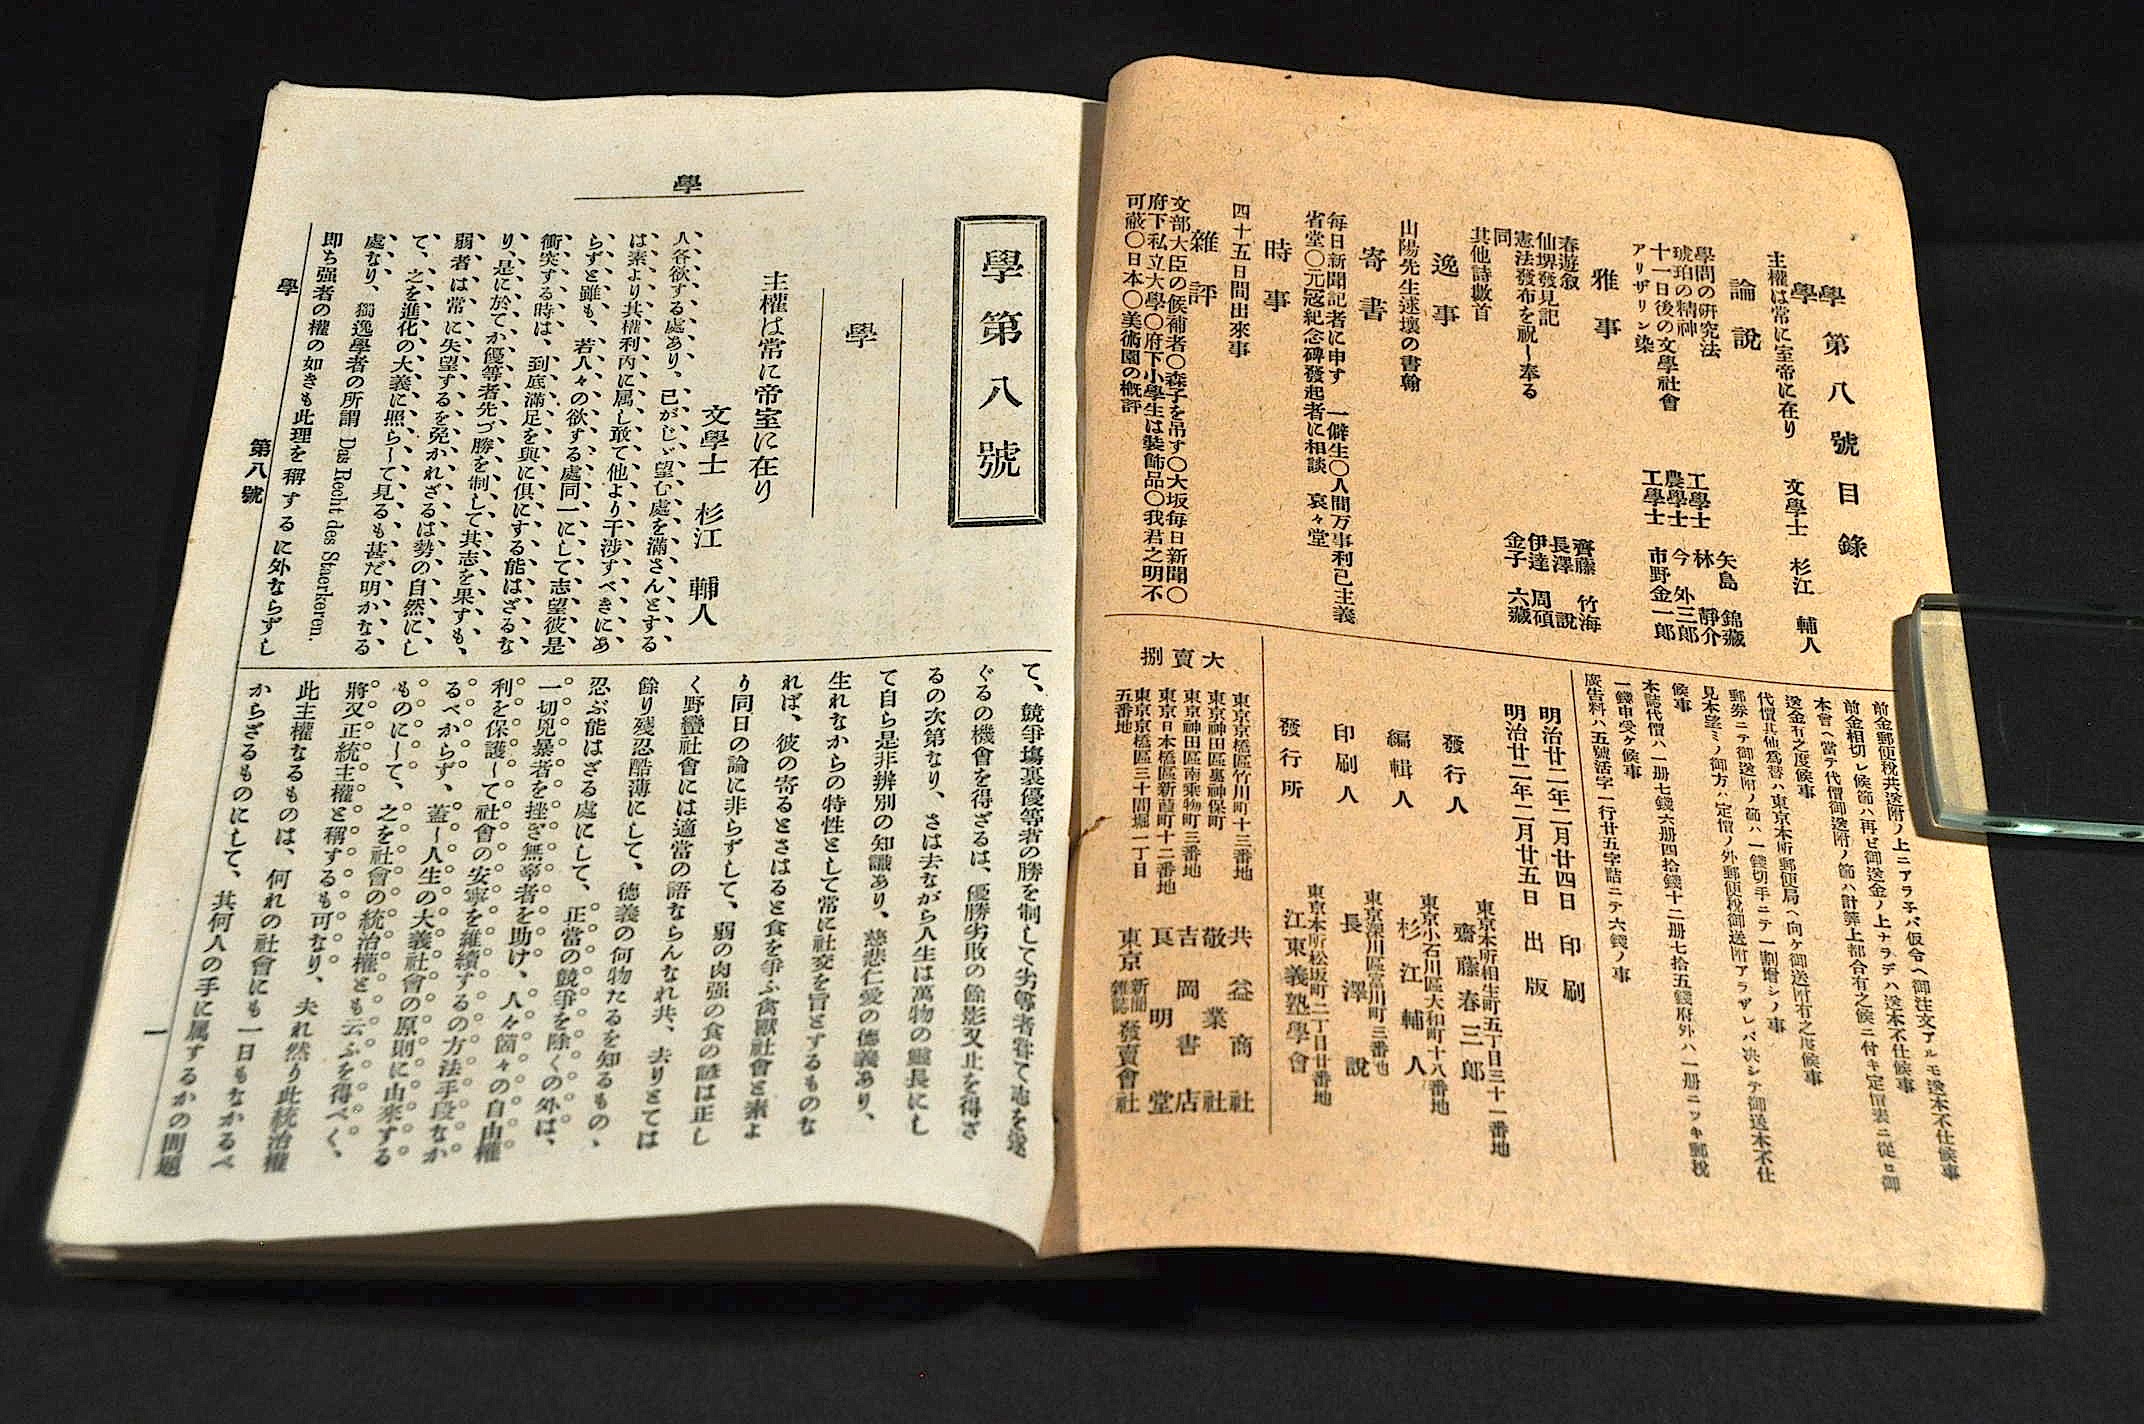 學第八號目錄
學
主權は常に室帝に在り 文學士 杉江 輔人
論說
學問の研究法 矢島 錦藏
琥珀の精神 工學士 林 靜介
十一日後の文學社會 農學士 今 外三郎
アリザリン染 工學士 市野金一郎
雅事
春遊敘 齋藤 竹海
仙堺發見記 長澤 說
憲法發布を祝し奉る 伊達 周碩
同 金子 六藏
其他詩數首
逸事
山陽先生述壞の書翰
寄書
每日新聞記者に申す 一僻生〇人間万事利己主義
省堂〇元冦紀念碑發起者に相談 哀々堂
時事
四十五日間出來事
雜評
文部大臣の候補者〇森子を吊す〇大坂每日新聞〇
府下私立大學〇府下小學生は裝飾品〇我君之明不
可蔽〇日本〇美術園の槪評
前金郵便稅共送附ノ上ニアラ子バ仮令ヘ御注文アルモ送本不仕候事
前金相切レ候節ハ再ビ御送金ノ上ナラデハ送本不仕候事
本會ヘ當テ代價御送附ノ節ハ計算上都合有之候ニ付キ定價表ニ從ヒ御
送金有之度候事
代價其他爲替ハ東京本所郵便局ヘ向ケ御送附有之度候事
郵券ニテ御送附ノ節ハ一錢切手ニテ一割增シノ事
見本望ミノ御方ハ定價ノ外郵便稅御送附アラザレバ决シテ御送本不仕
候事
本誌代價ハ一册七錢六册四拾錢十二册七拾五錢府外ハ一册ニツキ郵稅
一錢申受ケ候事
廣告料ハ五號活字一行廿五字詰ニテ六錢ノ事
明治廿二年二月廿四日 印刷
明治廿二年二月廿五日 出版
東京本所相生町五丁目三十一番地
發行人 齋藤春三郎
東京小石川區大和町十八番地
編輯人 杉江輔人
東京深川區富川町三番地
印刷人 長澤說
東京本所松坂町二丁目廿番地
發行所 江東義塾學會
大賣捌
東京京橋區竹川町十三番地 共益商社
東京神田區裏神保町 敬業社
東京神田區南乘物町三番地 吉岡書店
東京日本橋區新葭町十二番地 良明堂
東京京橋區三十間堀一丁目
五番地 東京新聞雜誌發賣會社
學
學第八號
學
主權は常に帝室に在り
文學士 杉江 輔人
人各欲する處あり、己がじゝ望む處を滿さんとする
は素より其權利內に属し敢て他より干涉すべきにあ
らずと雖も、若人々の欲する處同一にして志望彼是
衝突する時は、到底滿足を與に俱にする能はざるな
り、是に於てか優等者先づ勝を制して其志を果すも、
弱者は常に失望するを免かれざるは勢の自然にし
て、之を進化の大義に照らして見るも甚だ明かなる
處なり、獨逸學者の所謂 Das Recht des Staerkeren.
即ち强者の權の如きも此理を稱するに外ならずし
て、競爭塲裏優等者の勝を制して劣等者甞て志を遂
ぐるの機會を得ざるは、優勝劣敗の餘影又止を得ざ
るの次第なり、さは去ながら人生は萬物の靈長にし
て自ら是非辨別の知識あり、慈悲仁愛の德義あり、
生れなからの特性として常に社交を旨とするものな
れば、彼の寄るとさはると食を爭ふ禽獸社會と素よ
り同日の論に非らずして、弱の肉强の食の諺は正し
く野蠻社會には適當の語ならんなれ共、去りとては
餘り殘忍酷薄にして、德義の何物たるを知るもの、
忍ぶ能はざる處にして、正當の競爭を除くの外は、
一切兇暴者を挫ぎ無辜者を助け、人々箇々の自由權
利を保護して社會の安寧を維續するの方法手段なか
るべからず、蓋し人生の大義社會の原則に由來する
ものにして、之を社會の統治權とも云ふを得べく、
將又正統主權と稱するも可なり、夫れ然り此統治權
此主權なるものは、何れの社會にも一日もなかるべ
からざるものにして、其何人の手に属するかの問題
學 第八號 一